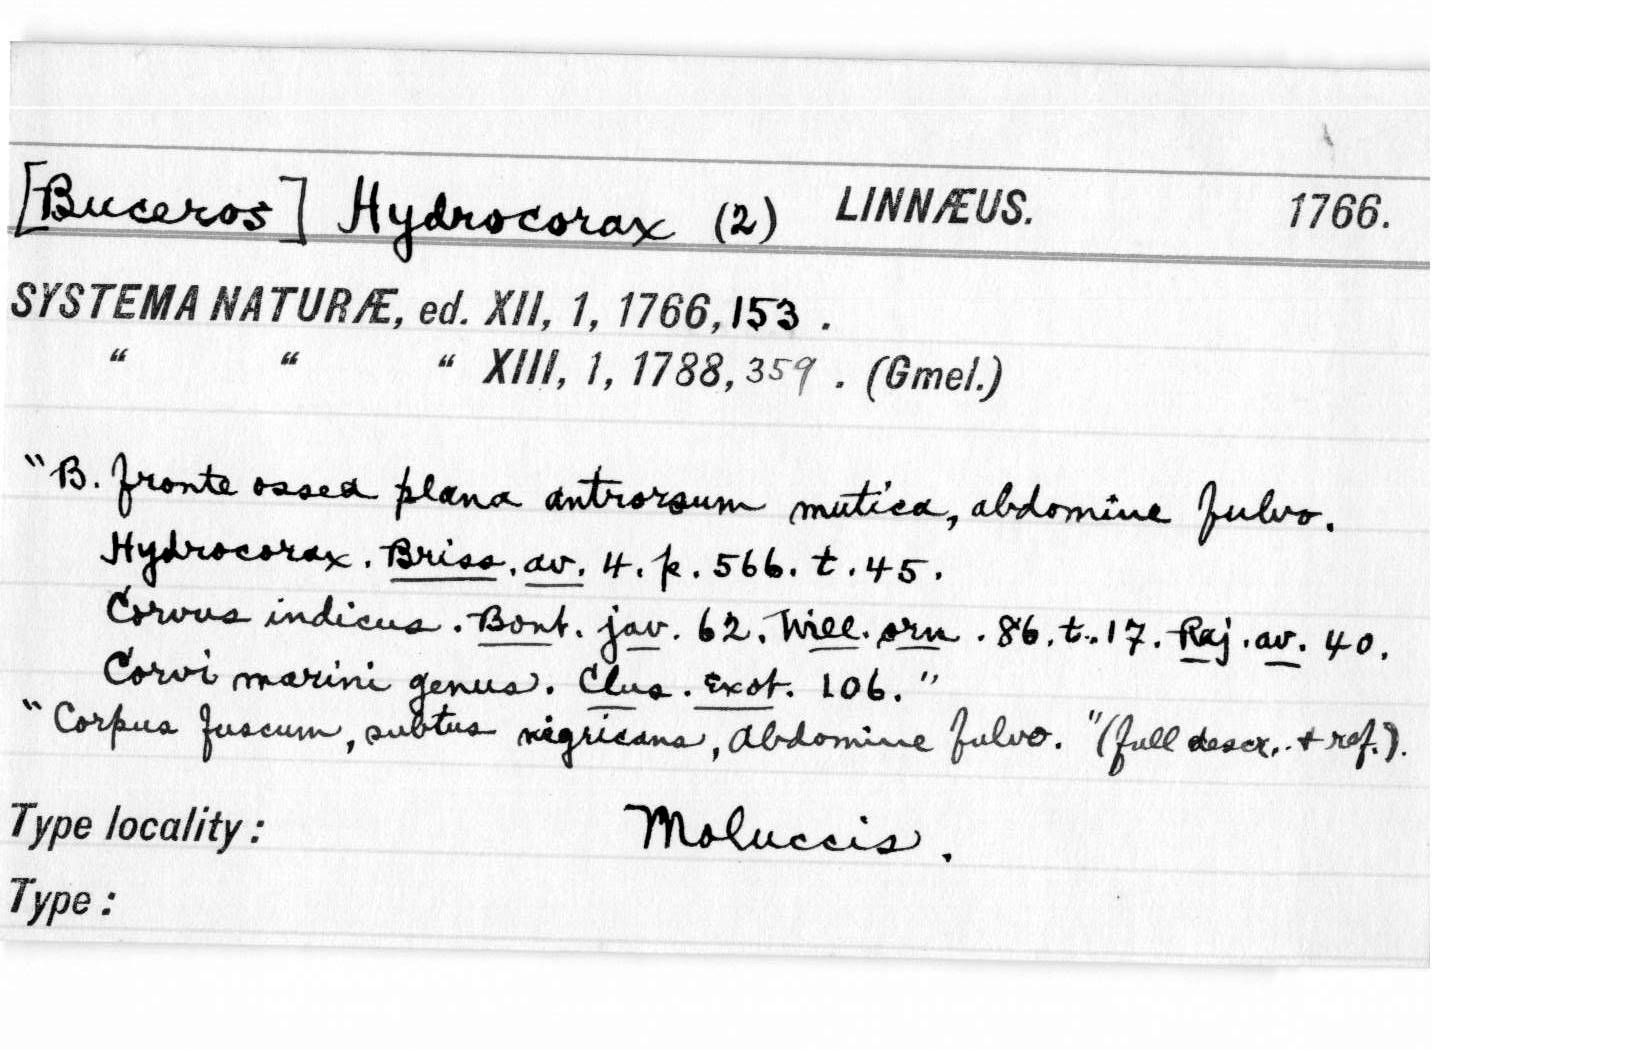 [Buceros] Hydrocorax (2) LINNÆUS. 1766.
SYSTEMA NATURÆ, ed. XII, 1, 1766, 153 .
“ “ “ XIII, 1, 1788, 359 . (Gmel.)
"B. fronte ossea plana antrorsum mutica, abdomine fulvo.
Hydrocorax. Briss. av. 4. p. 566. t. 45.
Corvus indicus. Bont. jav. 62. Will. orn. 86. t. 17. Raj. av. 40.
Corvi marini genus. Clus. Exot. 106."
"Corpus fuscum, subtus nigricans, Abdomine fulvo." (full descr. & ref.).
Type locality: Moluccis.
Type: